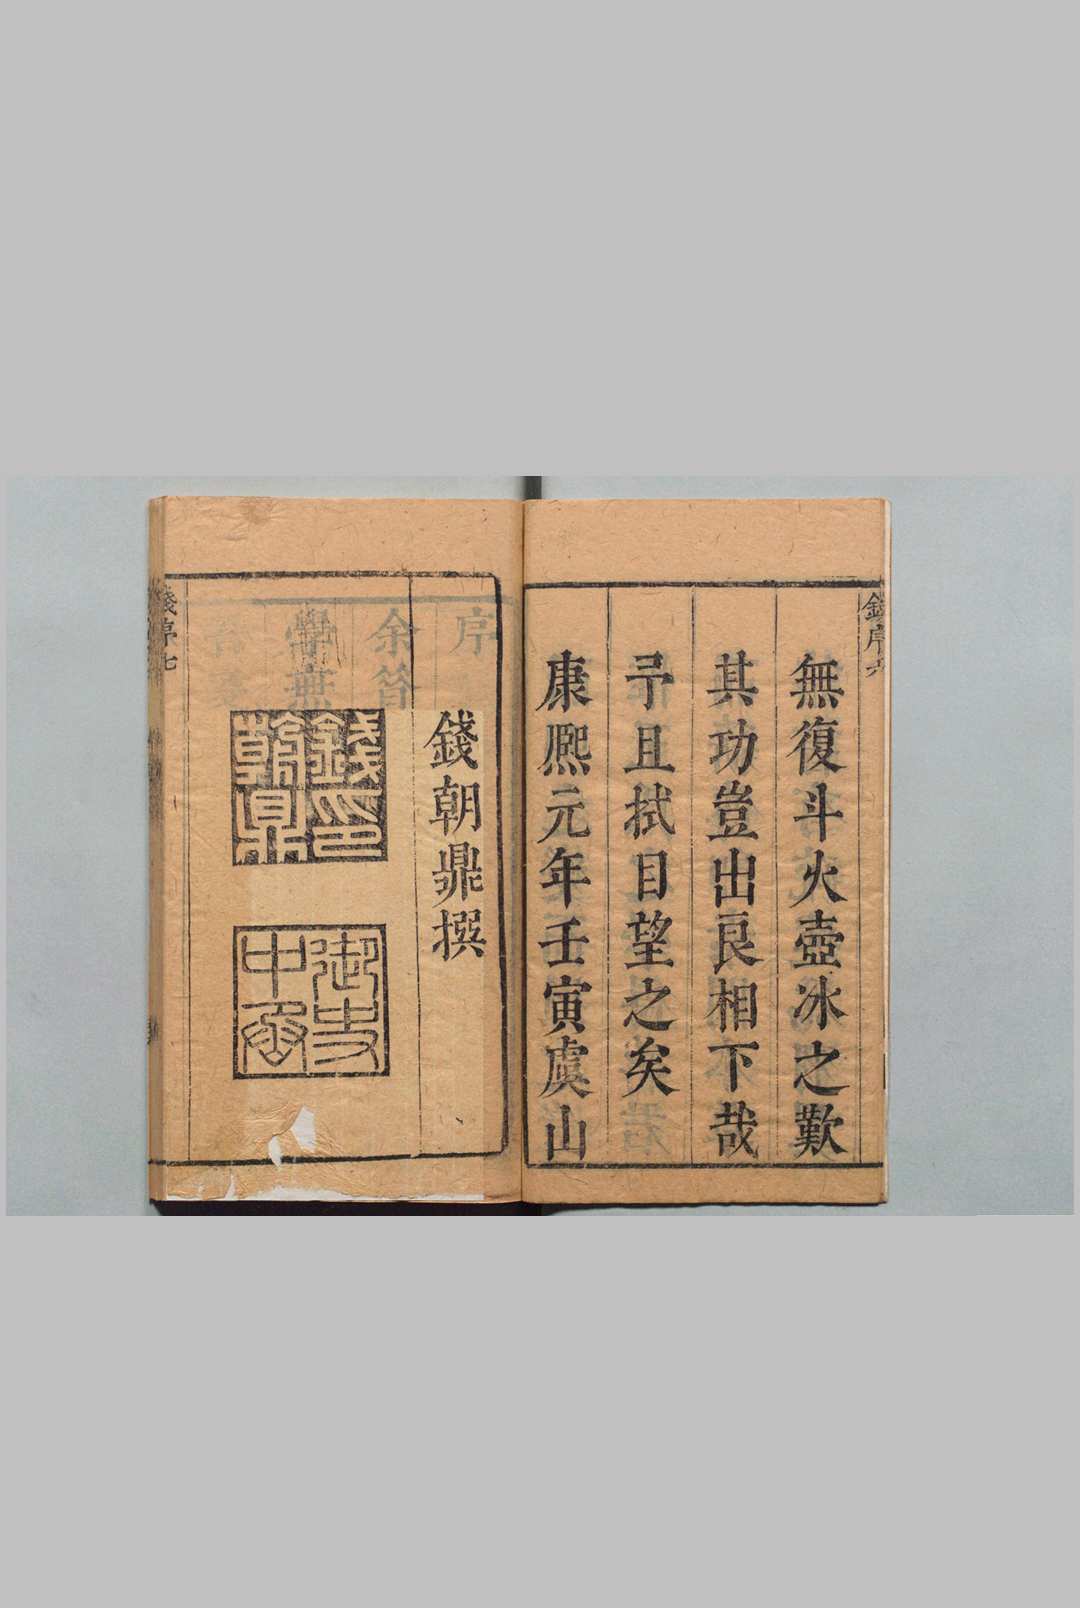 錢序六
無復斗火壺冰之歎
其功豈出良相下哉
予且拭目望之矣
康熙元年壬寅虞山
錢朝鼎撰
錢印朝鼎
御史中丞
錢序七